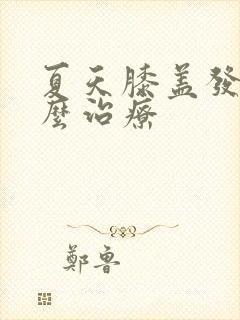 夏天膝盖發
麼治療
鄭魯